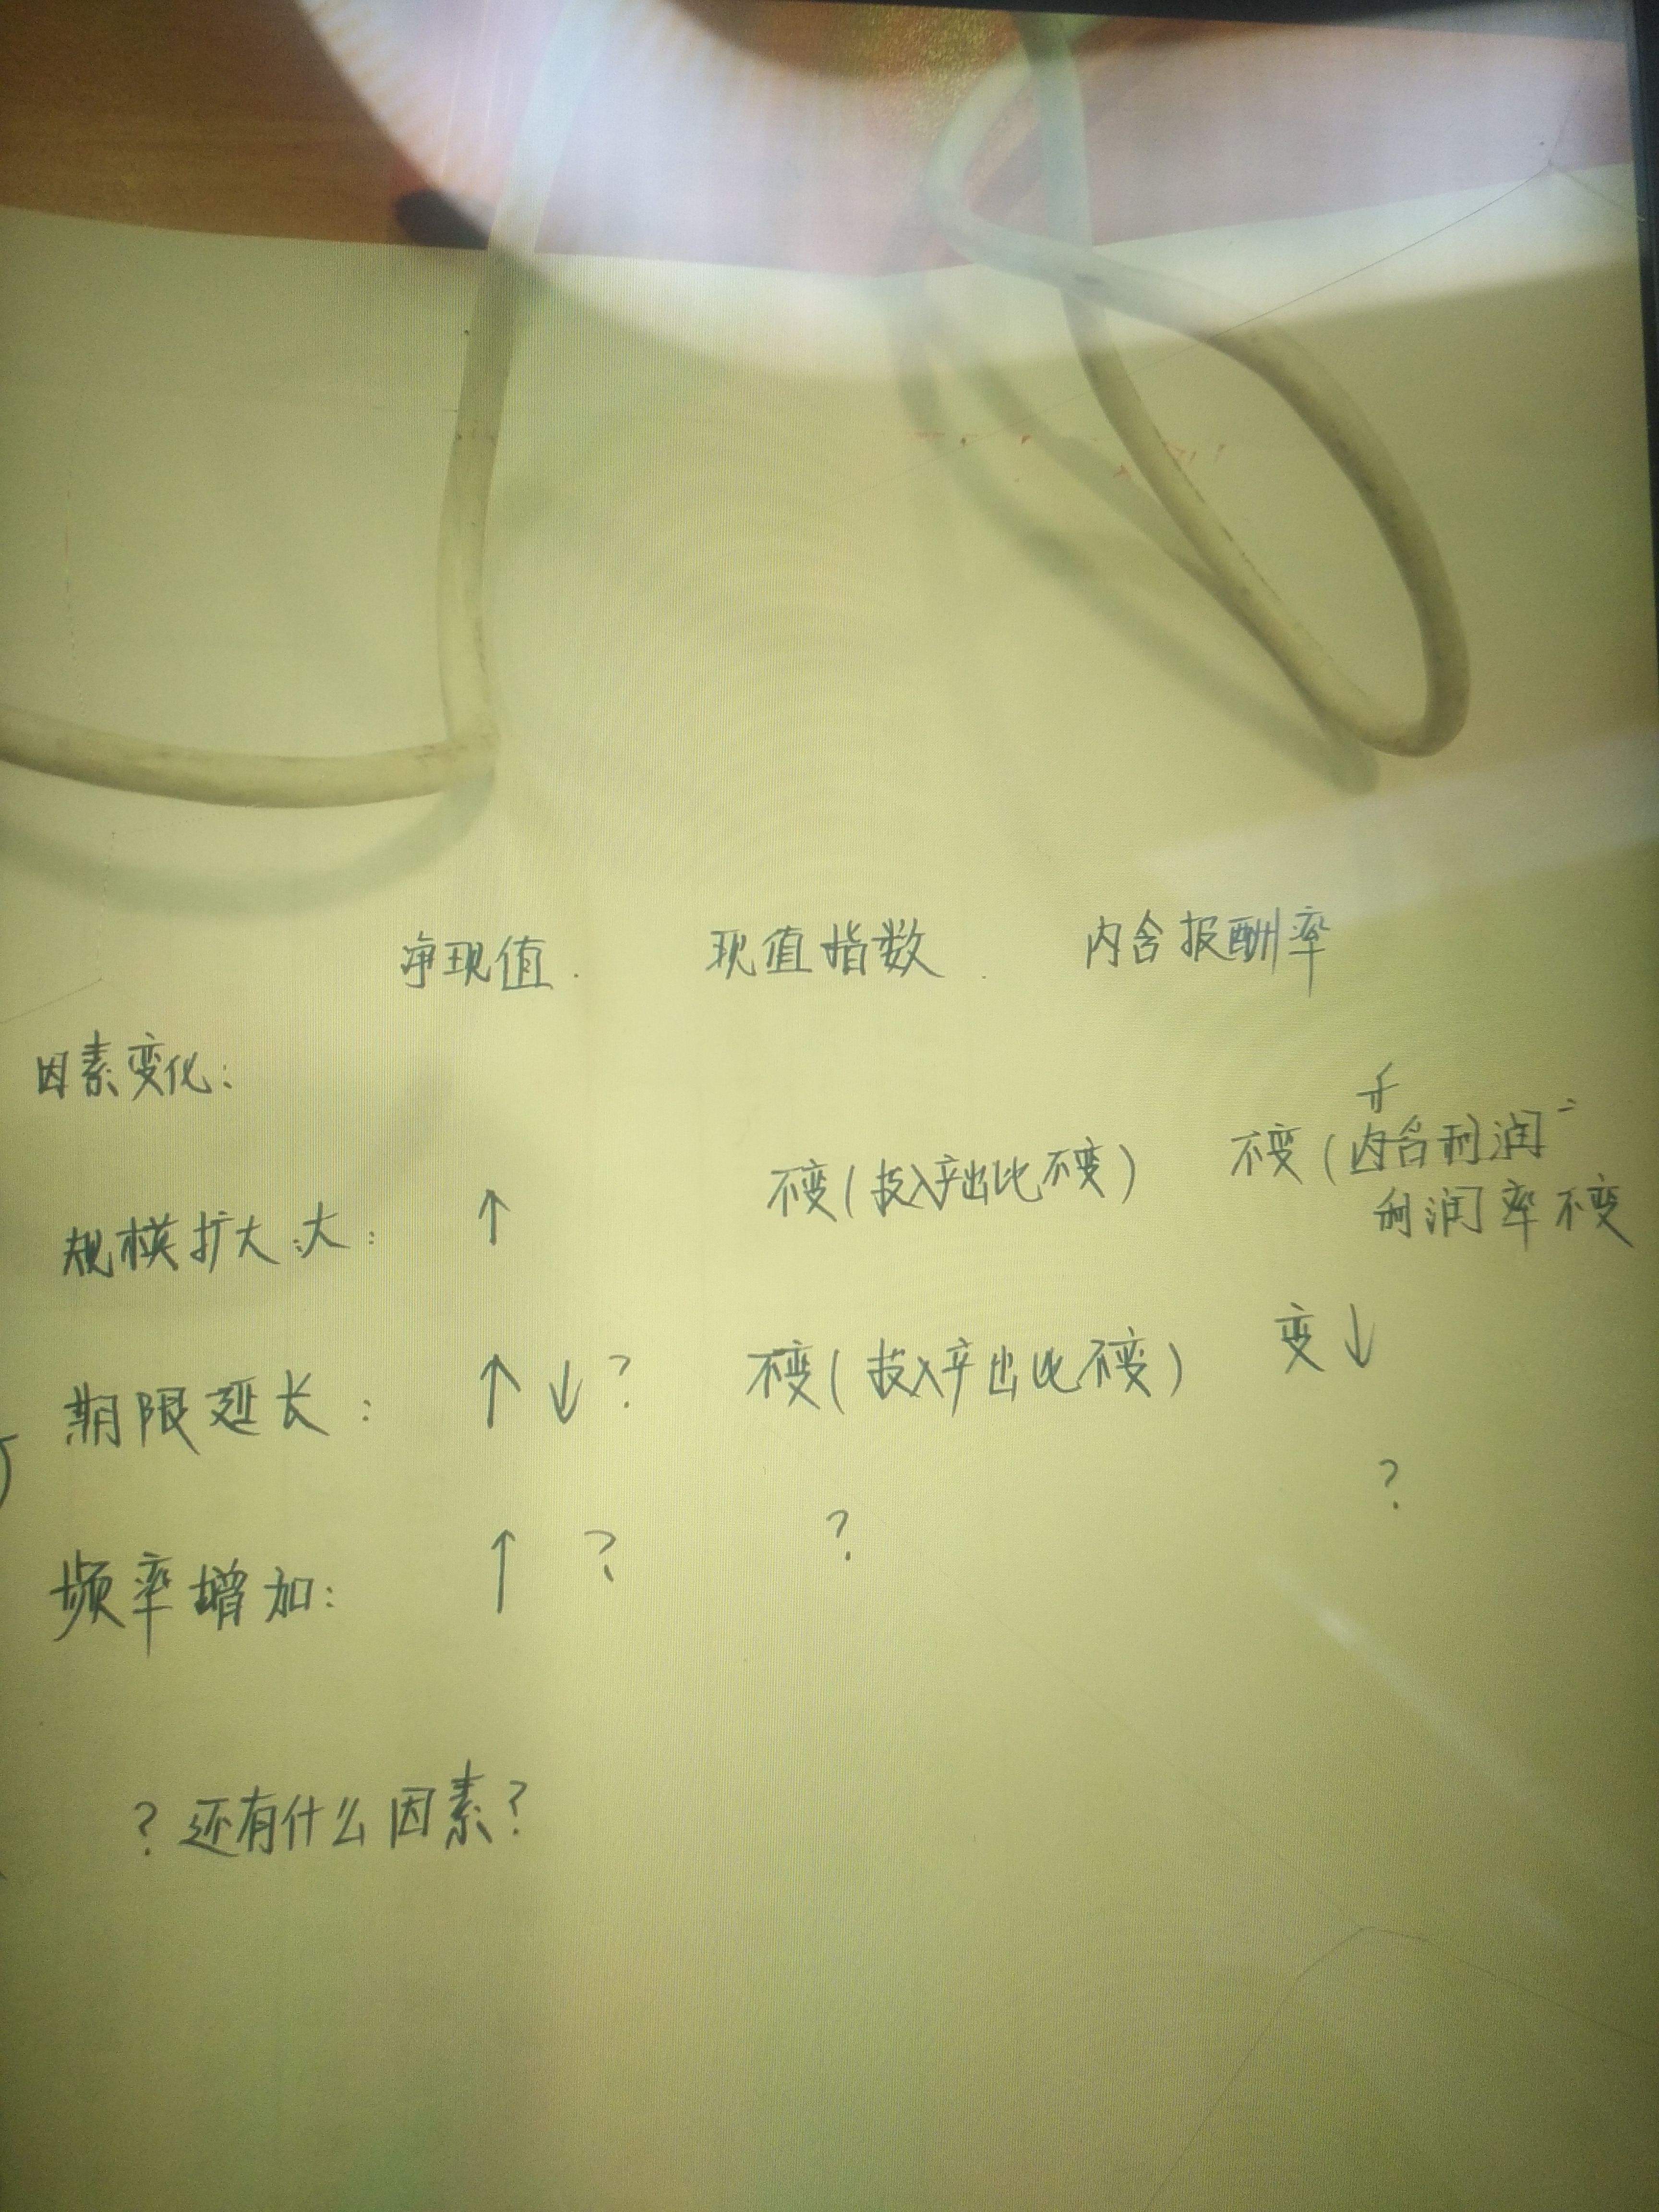 净现值. 现值指数. 内含报酬率
因素变化:
规模扩大大: ↑ 不变(投入产出比不变) 不变(内含利润=
利润率不变
期限延长: ↑↓? 不变(投入产出比不变) 变↓
频率增加: ↑ ? ? ?
?还有什么因素?